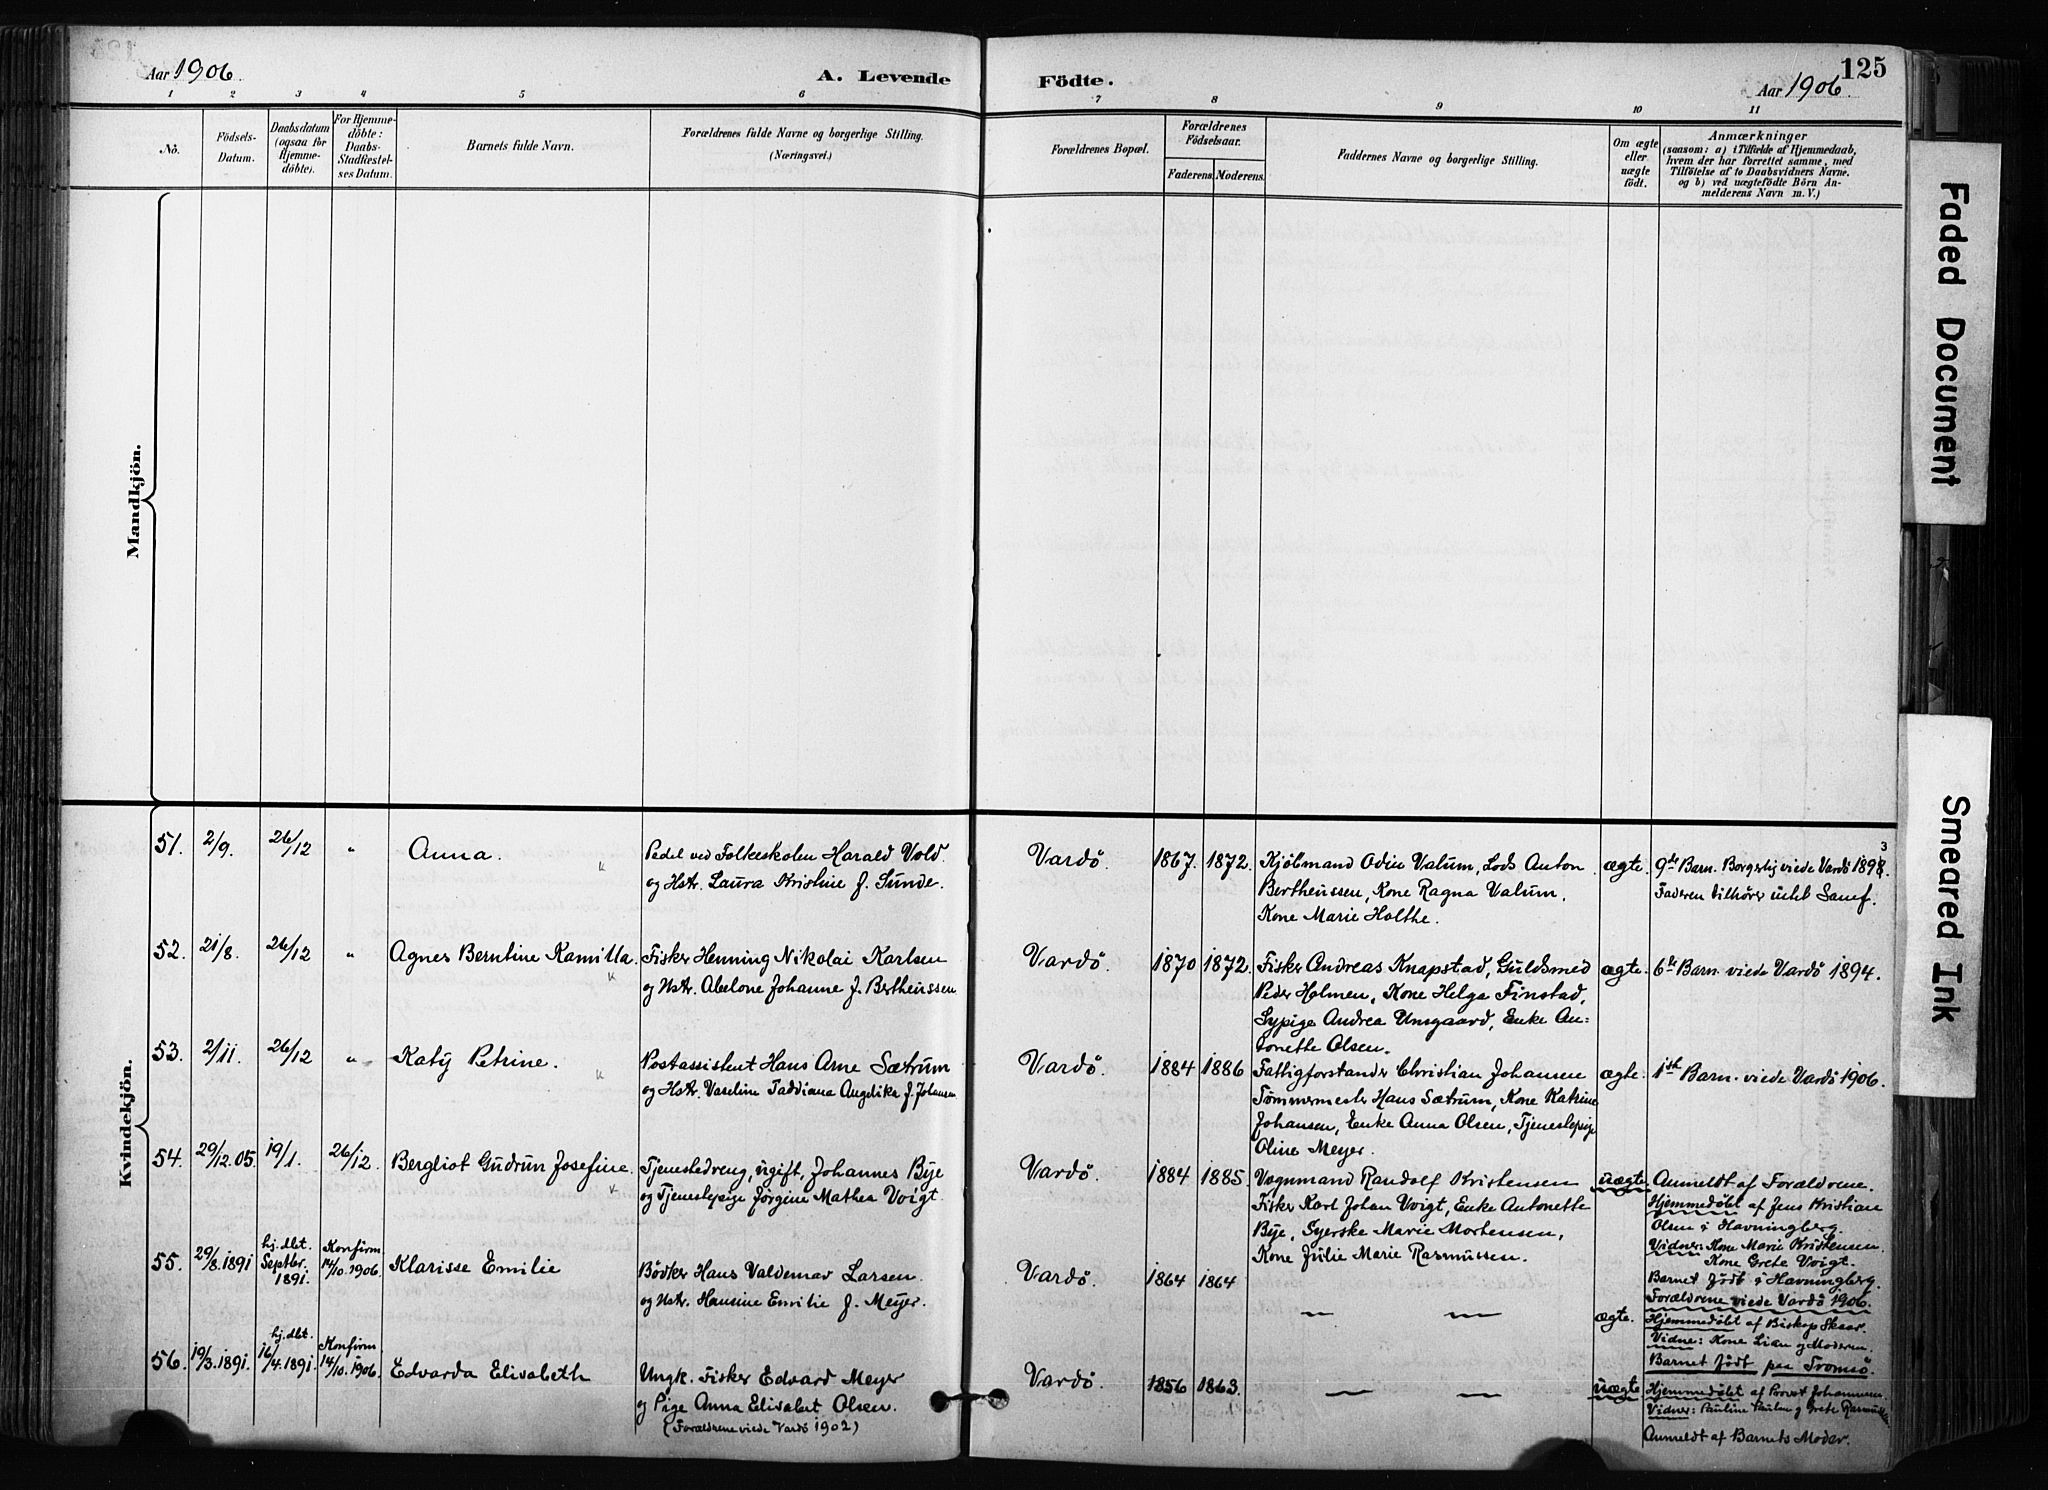 Aar 1906.
A. Levende Födte.
125
Aar 1906.
1 2 3 4 5 6 7 8 9 10 11
Nô.
Födsels-Datum.
Daabsdatum (ogsaa for Hjemme-döbte).
For Hjemme-döbte: Daabs-Stadfæstel-ses Datum.
Barnets fulde Navn.
Forældrenes fulde Navne og borgerlige Stilling.
(Næringsvei.)
Forældrenes Bopæl.
Forældrenes Födselsaar.
Faderens. Moderens.
Faddernes Navne og borgerlige Stilling.
Om ægte eller uægte födt.
Anmærkninger
(saasom: a) i Tilfælde af Hjemmedaab,
hvem der har forrettet samme, med
Tilföielse af to Daabsvidners Navne,
og b) ved uægtefödte Börn An-
melderens Navn m. V.)
Mandkjön.
Kvindekjön.
51. 2/9. 26/12 " Anna.
Pedel ved Folkeskolen Harald Vold
og Hstr. Laura Kristine f. Sunde.
Vardö. 1867. 1872.
Kjöbmand Odin Valum, Lods Anton
Bertheussen, Kone Ragna Valum,
Kone Marie Holthe.
ægte.
9de Barn. Borgerlig viede Vardö 1893.
Faderen tilhörer intet Samf.
52. 21/8. 26/12 " Agnes Berntine Kamilla.
Fisker Henning Nikolai Karlsen
og Hstr. Abelone Johanne f. Bertheussen
Vardö. 1870 1872.
Fisker Andreas Knapstad, Guldsmed
Peder Holmen, Kone Helga Finstad,
Sypige Andrea Unsgaard, Enke An-
tonette Olsen.
ægte.
6te Barn. viede Vardö 1894.
53. 2/11. 26/12 " Katy Petrine.
Postassistent Hans Arne Sætrum
og Hstr. Vaseline Taddiana Angelika f. Johansen
Vardö. 1884 1886
Fattigforstander Christian Johansen
Tömmermester Hans Sætrum, Kone Katrine
Johansen, Enke Anna Olsen, Tjenestepige
Oline Meyer.
ægte.
1ste Barn. viede Vardö 1906.
54. 29/12.05. 19/1. 26/12. Bergliot Gudrun Josefine.
Tjenestedreng, ugift, Johannes Bye
og Tjenestepige Jörgine Mathea Voigt.
Vardö. 1884 1885.
Vognmand Randolf Kristensen
Fisker Karl Johan Voigt, Enke Antonette
Bye, Syerske Marie Mortensen,
Kone Julie Marie Rasmussen.
uægte.
Anmeldt af Forældrene.
Hjemmedöbt af Jens Kristian
Olsen i Havningberg.
Vidner: Kone Marie Kristensen.
Kone Grete Voigt.
Barnet födt i Havningberg.
Forældrene viede Vardö 1906.
55. 29/8.1891 hj. dbt. Septbr. 1891. Konfirm. 14/10.1906. Klarisse Emilie
Bödker Hans Valdemar Larsen
og Hstr. Hansine Emilie f. Meyer.
Vardö. 1864 1864
— —
ægte.
Hjemmedöbt af Biskop Skaar.
Vidne: Kone Lian og Moderen.
Barnet födt paa Tromsö.
56. 19/3.1891. hj. dbt. 16/4.1891. Konfirm. 14/10.1906. Edvarda Elisabeth
Ungk. Fisker Edvard Meyer
og Pige Anna Elisabet Olsen.
(Forældrene viede Vardö 1902)
Vardö. 1856 1863.
— —
uægte
Hjemmedöbt af Provst Johannsen.
Vidner: Pauline Paulsen og Grete Rasmussen
Anmeldt af Barnets Moder.
Faded Document
Smeared Ink